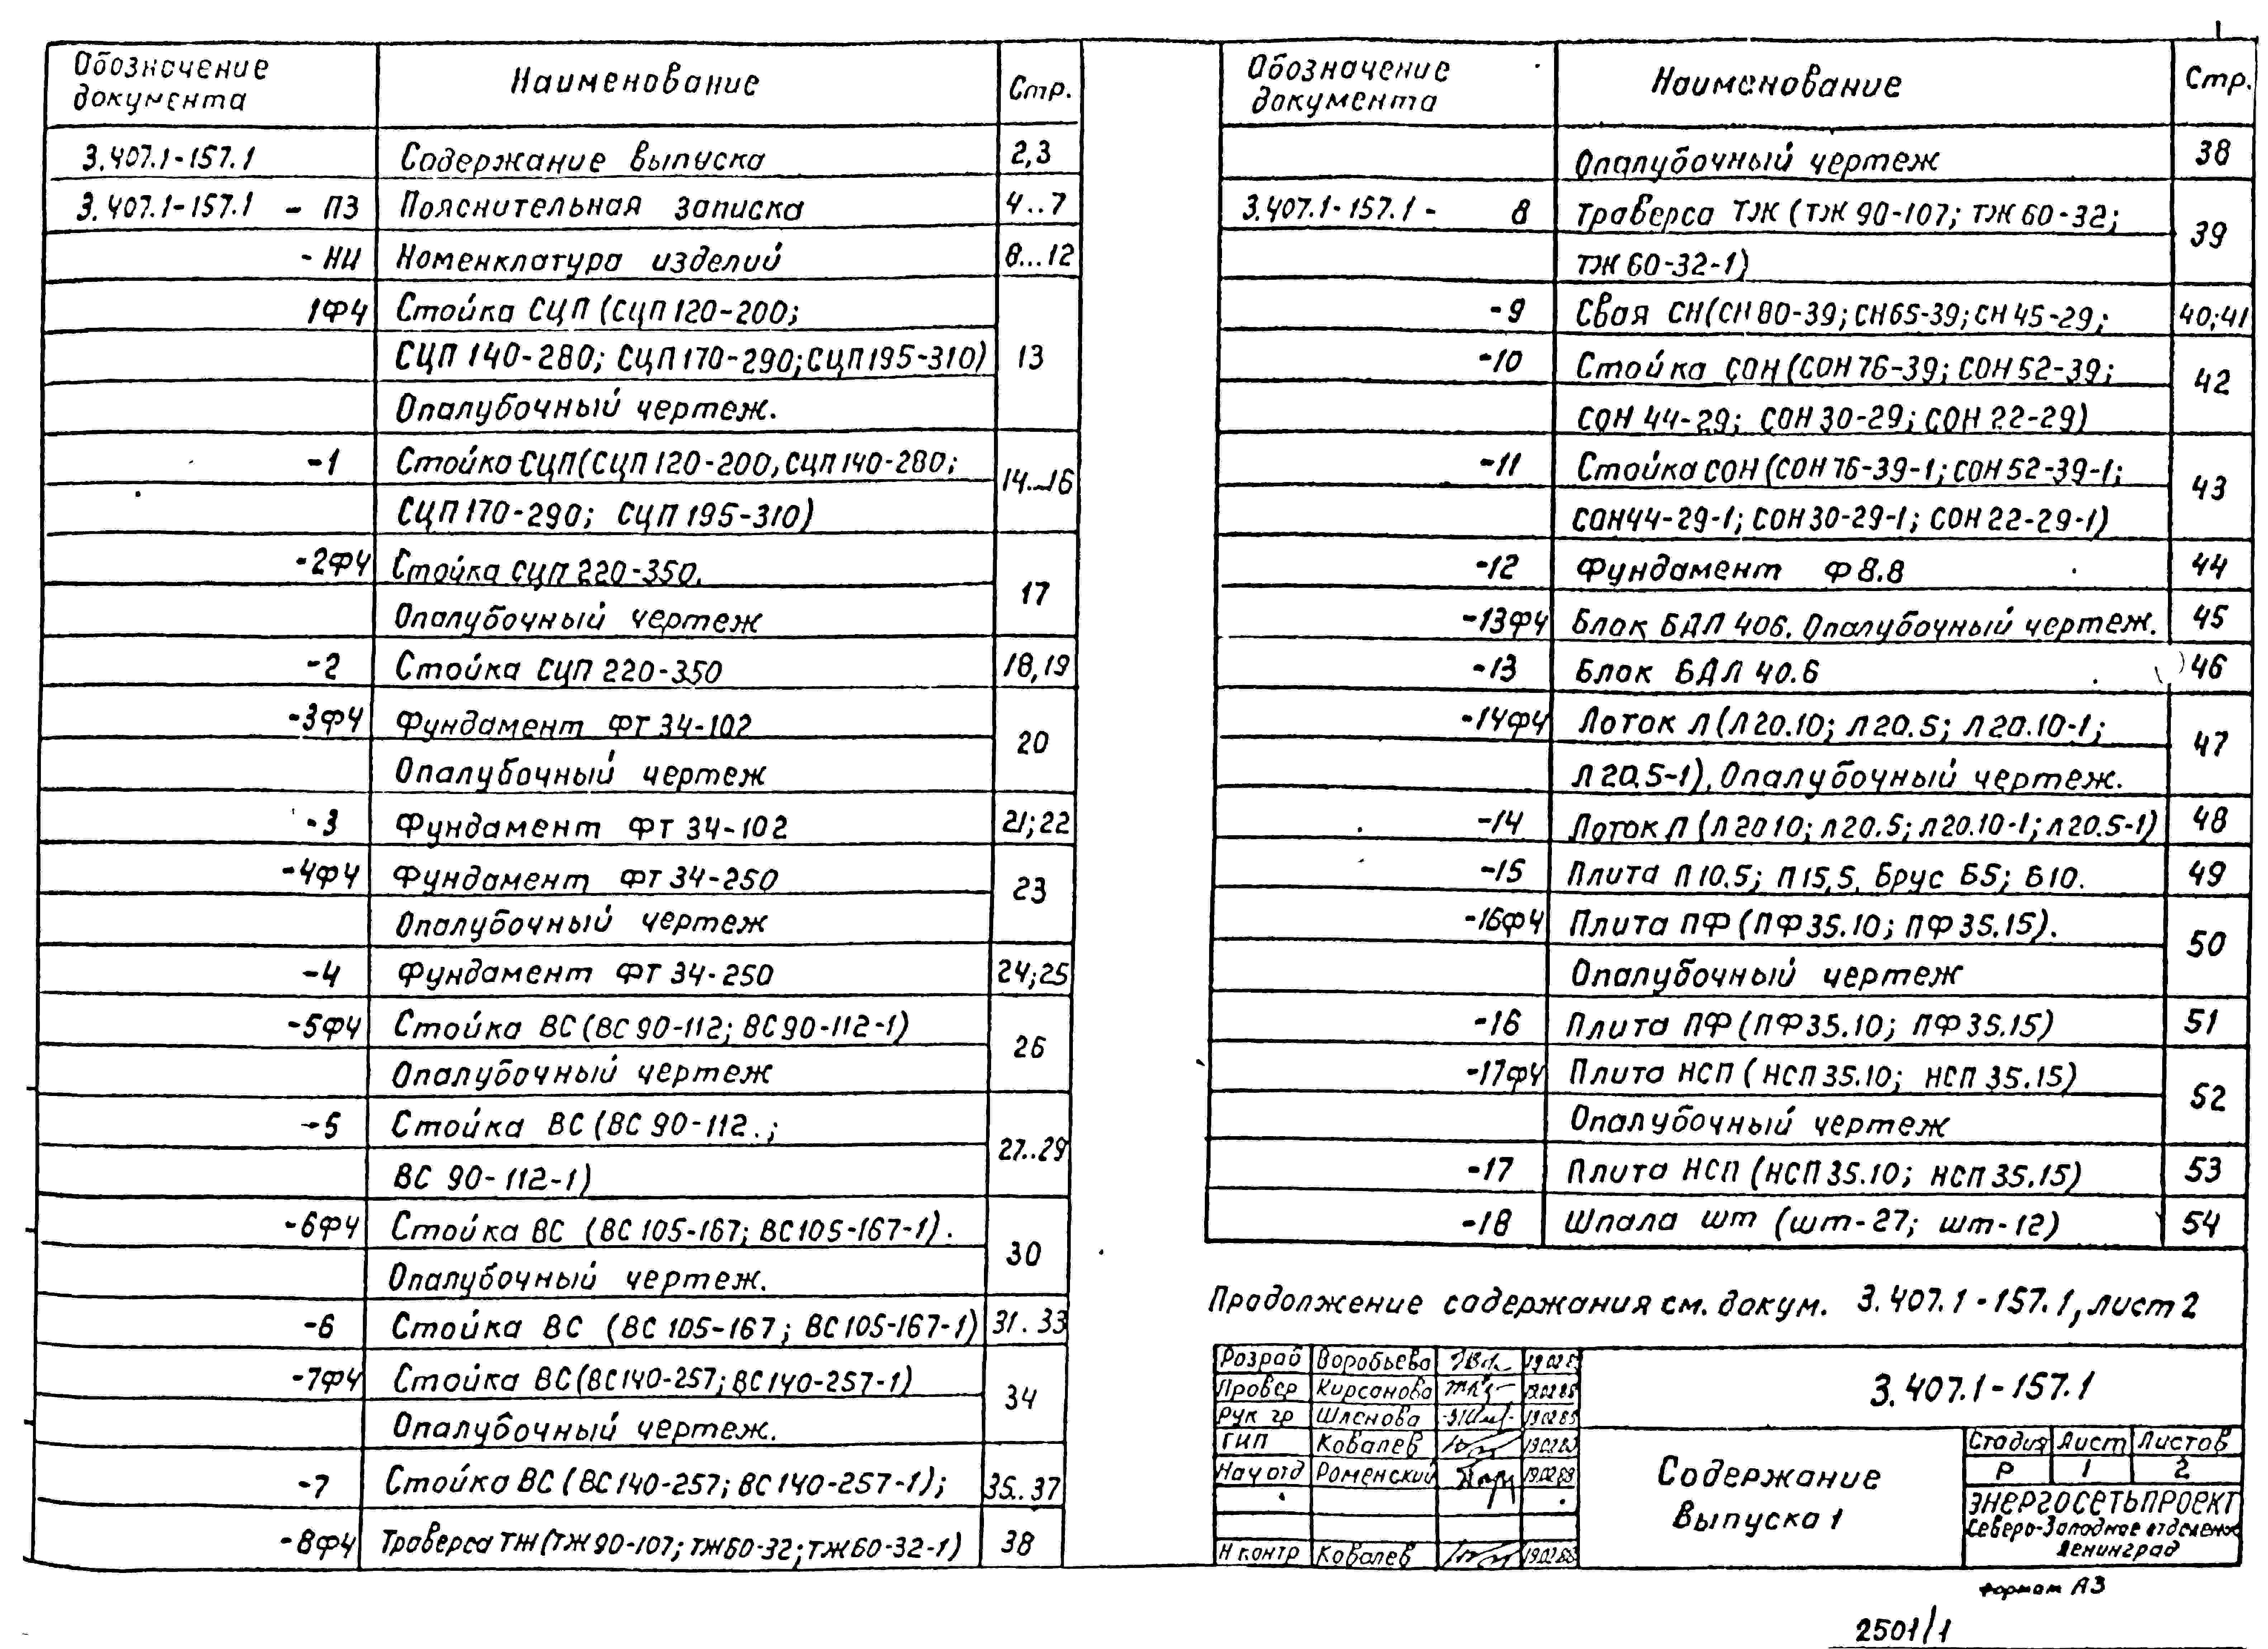 Обозначение документа Наименование Стр.
3.407.1-157.1 Содержание выпуска 2,3
3.407.1-157.1 - ПЗ Пояснительная записка 4..7
- НИ Номенклатура изделий 8...12
1ФЧ Стойка СЦП (СЦП 120-200;
СЦП 140-280; СЦП 170-290; СЦП 195-310) 13
Опалубочный чертеж.
-1 Стойка СЦП (СЦП 120-200, СЦП 140-280; 14...16
СЦП 170-290; СЦП 195-310)
-2ФЧ Стойка СЦП 220-350. 17
Опалубочный чертеж
-2 Стойка СЦП 220-350 18,19
-3ФЧ Фундамент ФТ 34-102 20
Опалубочный чертеж
-3 Фундамент ФТ 34-102 21;22
-4ФЧ Фундамент ФТ 34-250 23
Опалубочный чертеж
-4 Фундамент ФТ 34-250 24;25
-5ФЧ Стойка ВС (ВС 90-112; ВС 90-112-1) 26
Опалубочный чертеж
-5 Стойка ВС (ВС 90-112.; 27..29
ВС 90-112-1)
-6ФЧ Стойка ВС (ВС 105-167; ВС 105-167-1). 30
Опалубочный чертеж.
-6 Стойка ВС (ВС 105-167; ВС 105-167-1) 31..33
-7ФЧ Стойка ВС (ВС 140-257; ВС 140-257-1) 34
Опалубочный чертеж.
-7 Стойка ВС (ВС 140-257; ВС 140-257-1); 35..37
-8ФЧ Траверса ТЖ (ТЖ 90-107; ТЖ 60-32; ТЖ 60-32-1) 38
Обозначение документа Наименование Стр.
Опалубочный чертеж 38
3.407.1-157.1 - 8 Траверса ТЖ (ТЖ 90-107; ТЖ 60-32; 39
ТЖ 60-32-1)
-9 Свая СН (СН 80-39; СН 65-39; СН 45-29; 40;41
-10 Стойка СОН (СОН 76-39; СОН 52-39; 42
СОН 44-29; СОН 30-29; СОН 22-29)
-11 Стойка СОН (СОН 76-39-1; СОН 52-39-1; 43
СОН 44-29-1; СОН 30-29-1; СОН 22-29-1)
-12 Фундамент Ф 8.8 44
-13ФЧ Блок БДЛ 406. Опалубочный чертеж. 45
-13 Блок БДЛ 40.6 46
-14ФЧ Лоток Л (Л 20.10; Л 20.5; Л 20.10-1; 47
Л 20.5-1). Опалубочный чертеж.
-14 Лоток Л (Л 20 10; Л 20.5; Л 20.10-1; Л 20.5-1) 48
-15 Плита П 10.5; П 15,5. Брус Б5; Б10. 49
-16ФЧ Плита ПФ (ПФ 35.10; ПФ 35.15). 50
Опалубочный чертеж
-16 Плита ПФ (ПФ 35.10; ПФ 35.15) 51
-17ФЧ Плита НСП (НСП 35.10; НСП 35.15) 52
Опалубочный чертеж
-17 Плита НСП (НСП 35.10; НСП 35.15) 53
-18 Шпала шт (шт-27; шт-12) 54
Продолжение содержания см. докум. 3.407.1-157.1, лист 2
Розраб Воробьева
Провер Кирсанова
Рук гр Шленова
ГИП Ковалев
Нач отд Роменский
Н контр Ковалев
3.407.1-157.1
Содержание
Выпуска 1
Стадия Лист Листов
Р 1 2
ЭНЕРГОСЕТЬПРОЕКТ
Северо-Западное отделение
Ленинград
Формат А3
2501/1